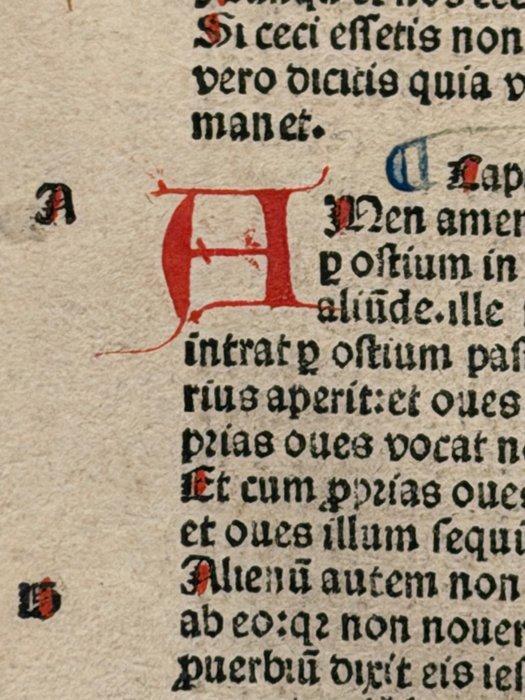 Si ceci eſſetis non
vero dicitis quia v
manet.
¶ Cap
A
A Men amen
ꝑ oſtium in
aliūde.ille
intrat ꝑ oſtium paſ
rius aperit:et oues
prias oues vocat n
Et cum ꝓprias oues
et oues illum ſequū
Alienū autem non
B
ab eo:qꝛ non nouer
ꝓuerbiū dixit eis ieſ